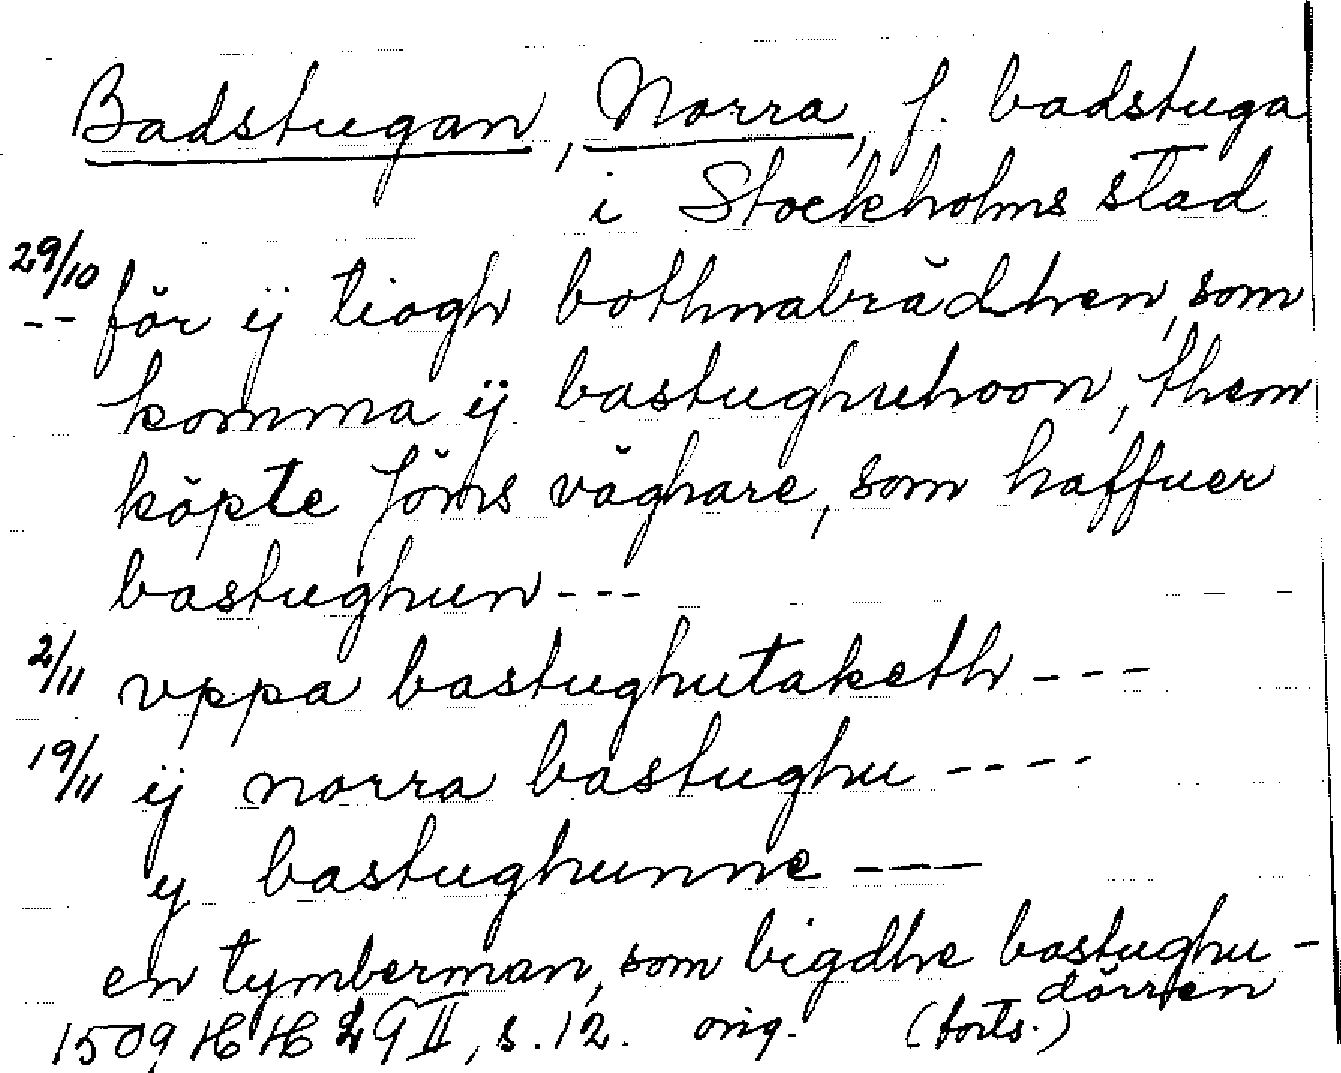 Badstugan, Norra, f. badstuga
i Stockholms stad
29/10
-- för ÿ tiogh bothnabrädhen, som
komma ÿ bastughuhoon, them
köpte Jöns väghare, som haffuer
bastughun ---
2/11 vppa bastughutaketh ---
19/11 ÿ norra bastughu ----
y bastughunne ---
en tymberman, som bigdhe bastughu-
dörren
1509 HH 29 II, s. 12. orig. (forts.)